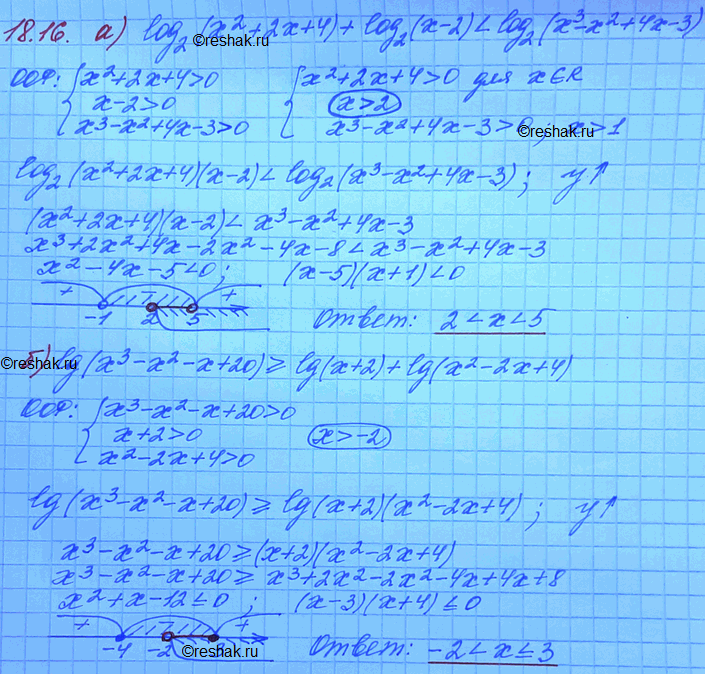 18.16. а) log₂(x²+2x+4)+log₂(x-2)<log₂(x³-x²+4x-3)
©reshak.ru
ООФ: { x²+2x+4>0 { x²+2x+4>0 для x∈R
x-2>0 x>2
x³-x²+4x-3>0 x³-x²+4x-3>0, x>1
©reshak.ru
log₂(x²+2x+4)(x-2)<log₂(x³-x²+4x-3); y↑
(x²+2x+4)(x-2)<x³-x²+4x-3
x³+2x²+4x-2x²-4x-8<x³-x²+4x-3
x²-4x-5<0; (x-5)(x+1)<0
+ - +
-1 2 5 Ответ: 2<x<5
©reshak.ru
б) lg(x³-x²-x+20)≥lg(x+2)+lg(x²-2x+4)
ООФ: { x³-x²-x+20>0
x+2>0 x>-2
x²-2x+4>0
lg(x³-x²-x+20)≥lg(x+2)(x²-2x+4); y↑
x³-x²-x+20≥(x+2)(x²-2x+4)
x³-x²-x+20≥x³+2x²-2x²-4x+4x+8
x²+x-12≤0; (x-3)(x+4)≤0
+ - +
-4 -2 Ответ: -2<x≤3
©reshak.ru
©reshak.ru